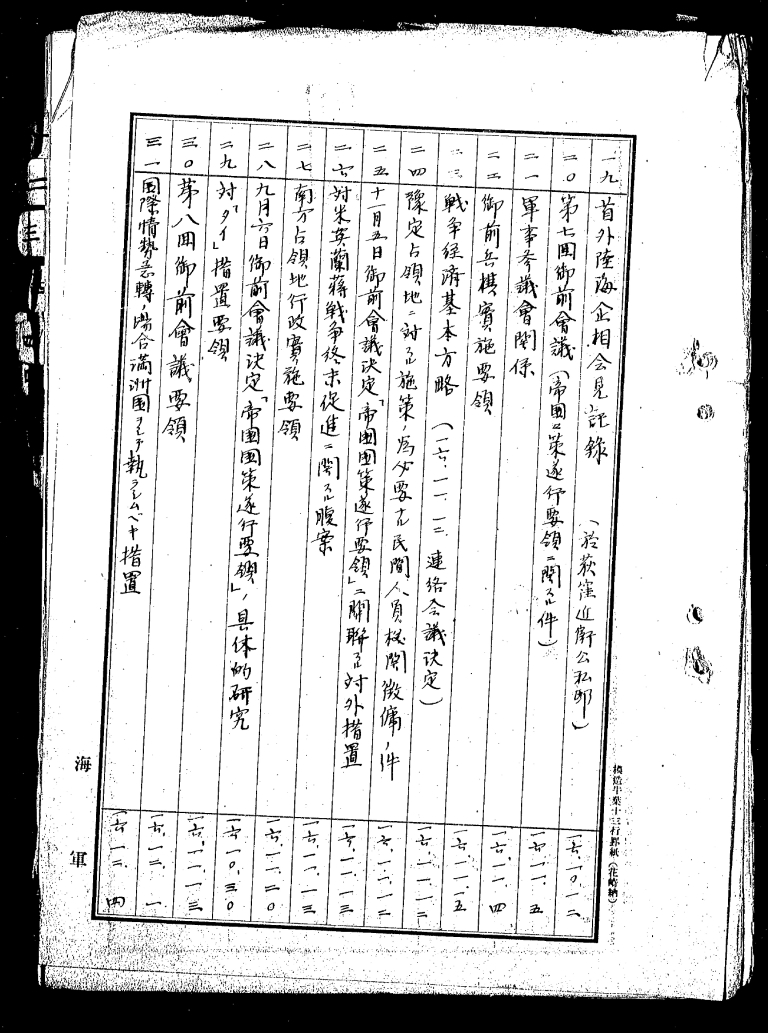 一九 首外陸海企相会見記録 (於荻窪近衛公私邸) 一六、一〇、一二
二〇 第七回御前会議(帝国国策遂行要領ニ関スル件) 一六、一一、五
二一 軍事参議會関係 一六、一一、四
二二 御前兵棋實施要領 一六、一一、五
二三 戦争経済基本方略 (一六、一一、一二 連絡会議決定) 一六、一一、一二
二四 豫定占領地ニ対スル施策ノ為必要ナル民間人員機関徴傭ノ件 一六、一一、一二
二五 十一月五日御前會議決定「帝国国策遂行要領」ニ関聯スル対外措置 一六、一一、一三
二六 対米英蘭蒋戦争終末促進ニ関スル腹案 一六、一一、一三
二七 南方占領地行政實施要領 一六、一一、二〇
二八 九月六日御前會議決定「帝国国策遂行要領」ノ具体的研究 一六、一〇、三〇
二九 対「タイ」措置要領
三〇 第八回御前會議要領 一六、一二、一
三一 国際情勢急轉ノ場合満洲国ヲシテ執ラシムベキ措置 一六、一二、四
海軍